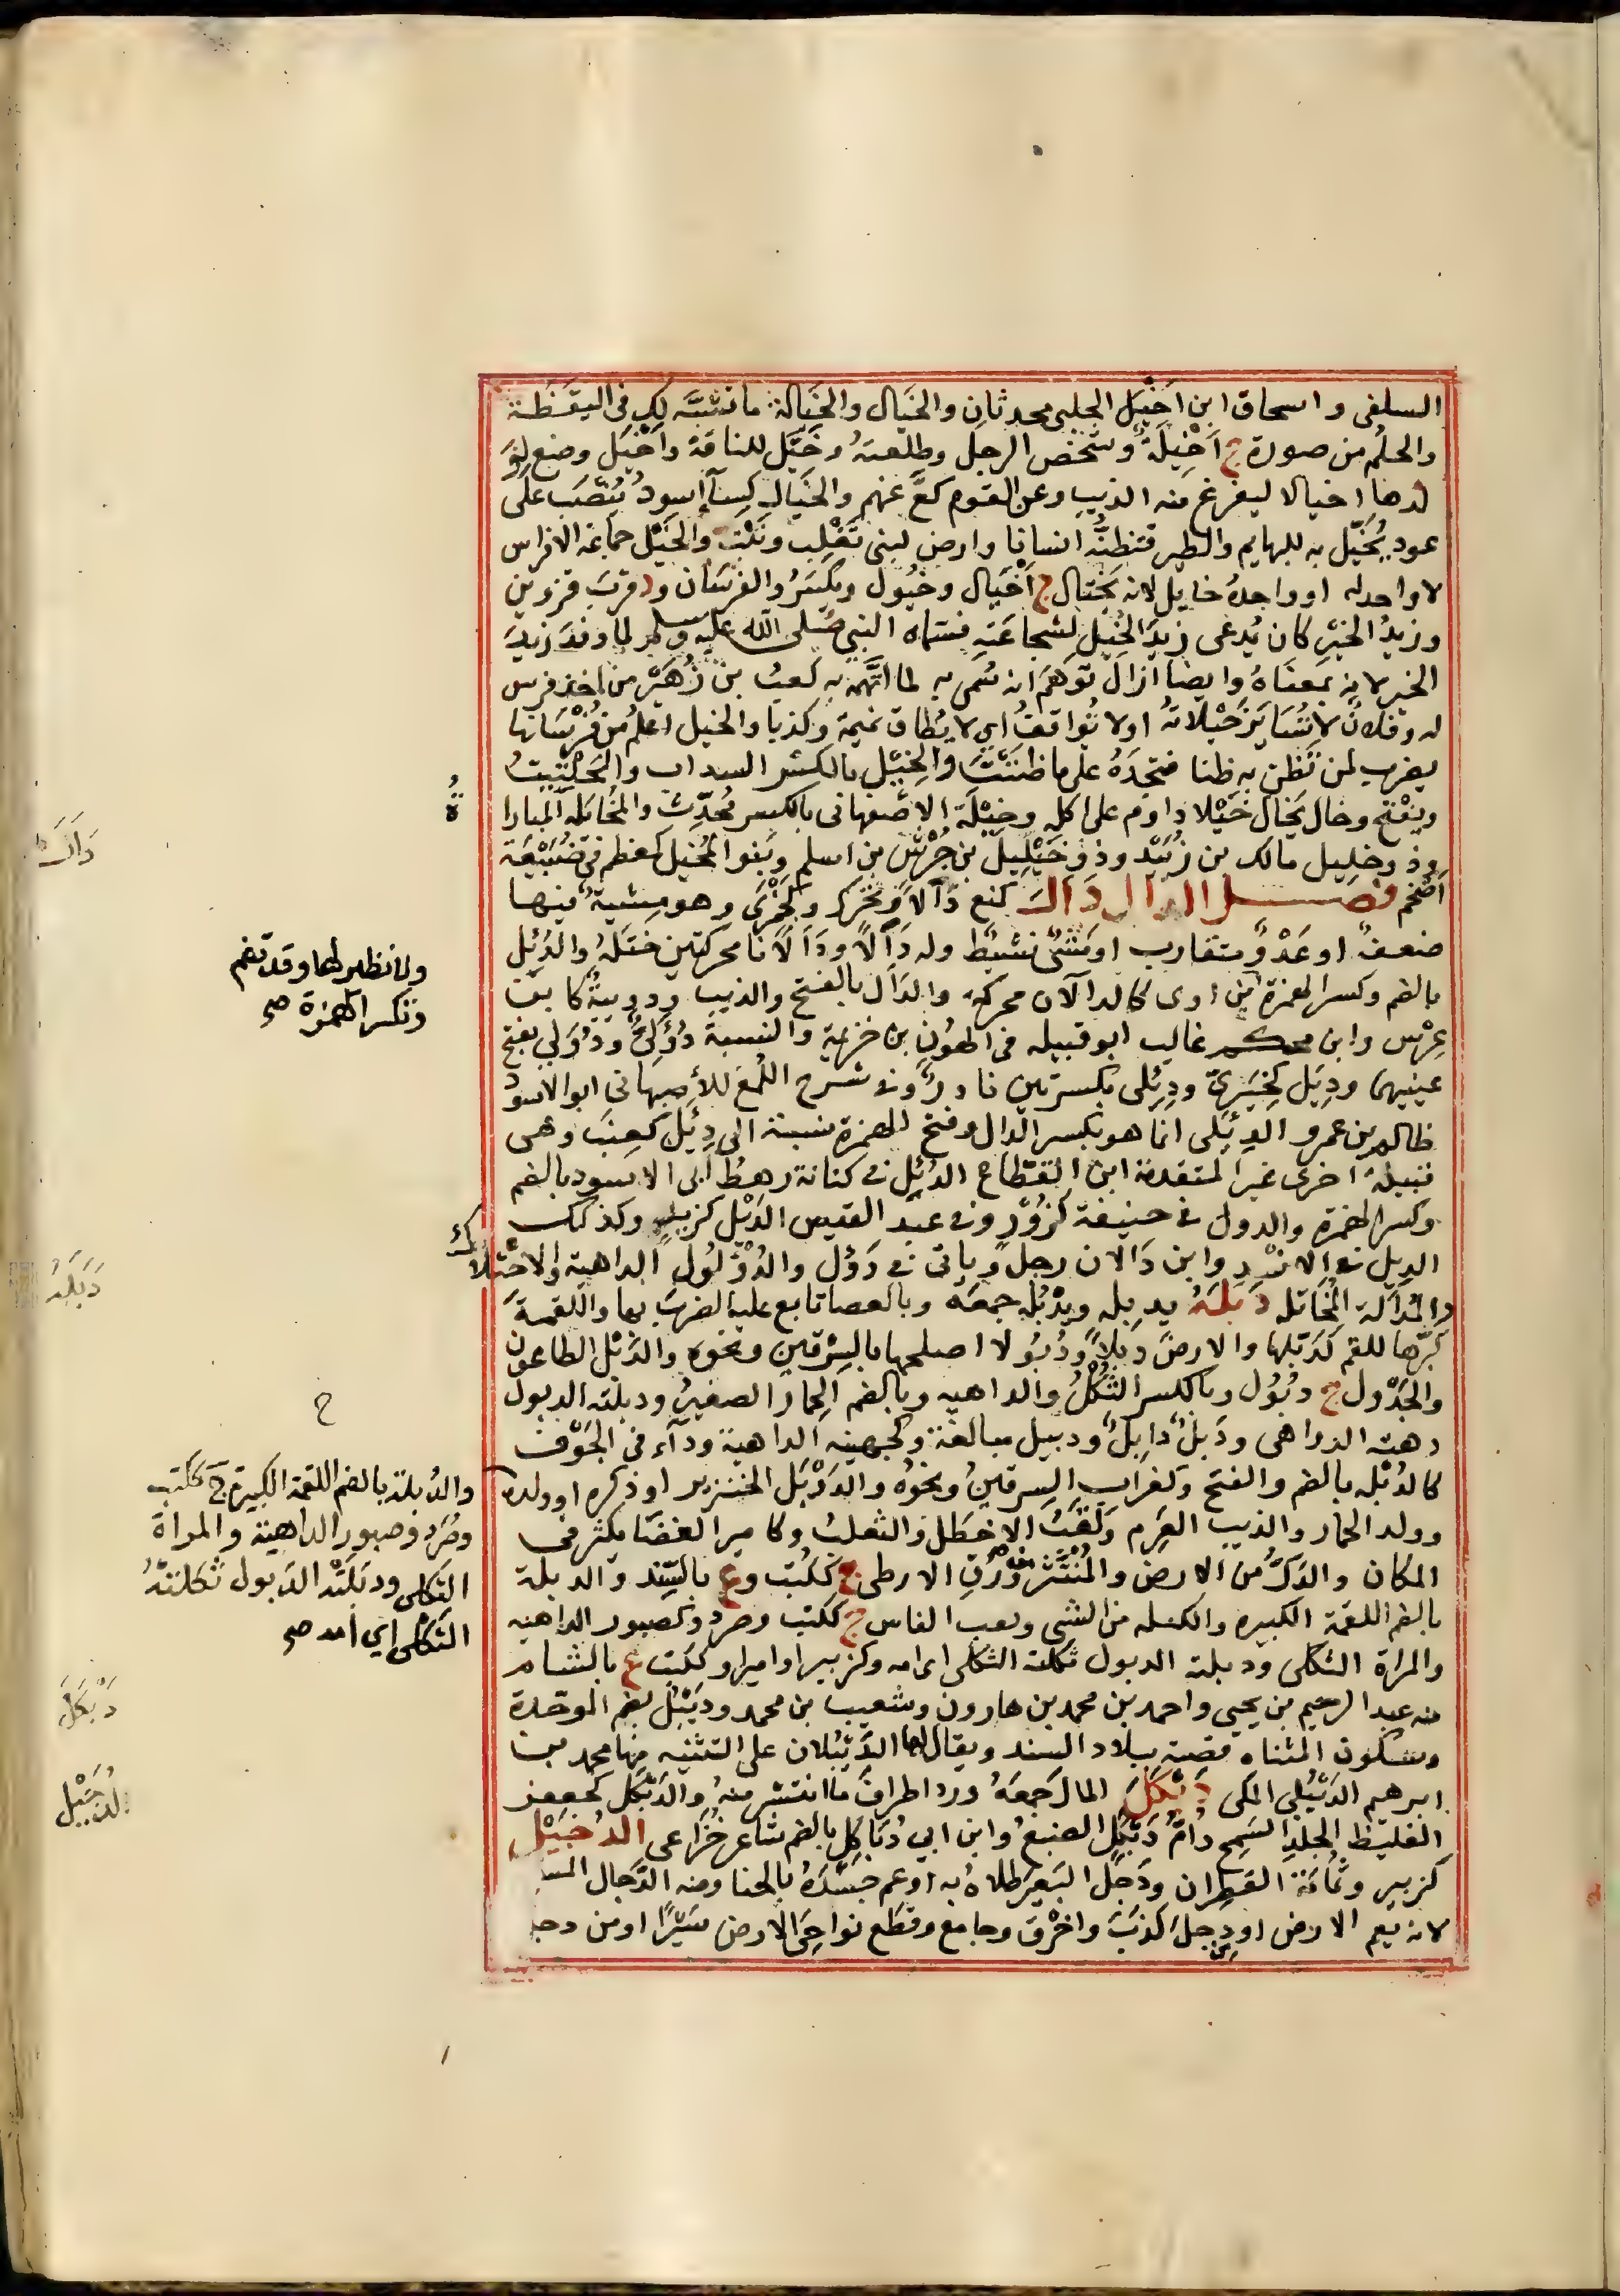 السلفى واسحاق ابن اَخْيَل الجلبى محدثانِ والخَيَال والخَيَالة ما تشبَّه لك فى اليقَظة
والحلُم من صورة ج اَخْيِلَة وشخص الرجل وطلعتهُ وخَيَّل للناقة واَخْيَل وضع لِوَ
لدها خيالا ليفزع منه الذيب وعن القوم كعَّ عنهم والخَيَال كِسَآءٌ اسودُ يُنْصَب على
عود يُخَيَّل به للبهايم والطير فتظنُّه انسانا وارض لبنى تَغْلِب ونَبْت والخَيْل جماعة الافراس
لا واحد له او واحدهُ خايل لانه يَخْتال ج اَخْيَال وخُيُول ويكسَرُ والفرسَان ود قربَ قزوين
وزيدُ الخَيْر كان يُدعى زيدَ الخَيْل لشجاعَتهِ فسَمَّاه النبى صَلى الله عليه وسلم لما وفد زيدَ
الخير لانه بمعنَاهُ وايضا ازال توَهّمَ انه سُمى به لما اتَّهمَ به كعبُ بن زُهَيْر من اخذ فرس
له وفلانٌ لا تُسَايَر خَيْلاهُ او لا تُواقفُ اى لا يُطاق نميمة وكذبا والخيل اعلَمُ من فُرْسَانها
يضرب لمن تَظن به ظنا فتجدَهُ على ما ظنَنْتَ والخِيْل بالكسر السداب والحِلْتِيتُ
ويفْتَح وخال يَخال خَيْلا داوم على اكلِه وخِيْلَة الاصْفهانى بالكسر مُحدِّث والمُخَايَلة المبارا
ةُ
وذو خليل مالك بن زُبَيْد وذو خَيْلِيل بن جُرَش بن اسلم وبَنوا المُخَيل كمعظم فى ضُبَيْعَة
اَضْخَم فصل الدال دَال كمنع دَأْلاً ويُحَرَّك وكجَمْزَى وهو مِشيةٌ فيها
ضعفٌ او عَدْوٌ متقارب او مَشْىٌ نشيطٌ وله دَأْلاً ودَأَلاَنا محركتين ختَلَهُ والدُئِل
بالضم وكسر الهمزة ابن اوى كالدالان محركة والدَأل بالفتح والذيب ودويبةٌ كابن
ولا نظير لها وقد تضم
وتكسر الهمزة صح
عِرْس وابن محكم غالب ابو قبيلة فى الهُون بن خزيمة والنسبة دُؤَلِىٌ ودُوَلِي بفتح
عينيهما ودِيَلى كخِيَرِىّ ودِئِلى بكسرتين نادرٌ وفى شرح اللُمَع للاصبهانى ابو الاسود
ظالم بن عمرو الدِئَلى انما هو بكسر الدال وفتح الهمزة نسبة الى دِئَل كعِنَب وهى
قبيلة اخرى غير المتقدمة ابن القطّاع الدُئِل فى كنانة رهطُ ابى الاسود بالضم
وكسر الهمزة والدول فى حنيفة كزُوْر وفى عبد القيس الدِيْل كزير وكذلك
الديل فى الازد وابن دَالان رجل وياتى فى دَوُل والدُؤْلُول الداهية والاختلاط
والمُدَاَلة المُخَاتلة دَبَلَهُ يدبِله ويدْبُله جمعَه وبالعصا تابع عليه الضربَ بها واللقمةَ
كبّرها للقم كدَبّلها والارضَ دَبْلاً ودُبُولا اصلحها بالسِرْقين ونحوه والدَبْل الطاعون
والجَدْول ج دُبُول وبالكسر الثُكْلُ والداهيه وبالضم الحِمار الصغيرُ ودبلته الدبول
دهته الدواهى ودَبْلٌ دابِلٌ ودبيل مبالغة وكجهينه الداهية ودآء فى الجَوْف
كالدُبْله بالضم والفتح وكغراب السِرقينُ ونحوُه والدَوْبَل الخنزير او ذكره او ولده
والدُبلة بالضم اللقمة الكبيرة ج ككتب
وصُرَد وصبور الداهية والمراة
الثكلى ودبَلَتْه الدَبول ثكلتهُ
الثكلى اى امه صح
وولد الحمار والذيب العَرِم ولَقَبُ الاخطل والثعلبُ وكامير الغضَا يكثر فى
المكان والدَكُّ من الارض والمُنْتَثر من وَرَق الارطى ج ككُتب وع بالسِّند والدبلة
بالضم اللقمة الكبيرة والكتله من الشى وثقب الفاس ج ككتب وصرد وكصبور الداهيه
والمراة الثكلى ودبلته الدبول ثكلته الثكلى اى امه وكزبير او امير او ككتب ع بالشام
منه عبد الرحيم بن يحيى واحمد بن محمد بن هارون وشعيب بن محمد ودَيْبُل بضم الموحّدة
وسكون المثناه قصبة ببلاد السند ويقال لها الدَيْبُلان على التثنيه منها محمد بن
ابرهيم الدَيْبُلى المكى دَبْكَلَ المال جَمعَهُ ورد اطرافَ ما انتشر منهُ والدَبْكَل كجعفر
الغليظ الجلدِ السَمِج واُمُّ دَبْكَلٍ الضبعُ وابن ابي دُبَاكِل بالضم شاعر خُزَاعى الدُجَيْل
كزبير وثُمَامَة القطران ودَجَل البَعيرَ طلاهُ به او عم جسَدَهُ بالهنا ومنه الدَّجال المسيح
لانه يعم الارض او من دجل كذبَ واخْرَق وجامع وقطَع نواحِىَ الارض سَيْرًا او من دجل
دَاَلَ
دَبَلَهُ
دَبْكَلَ
الدُجَيْل